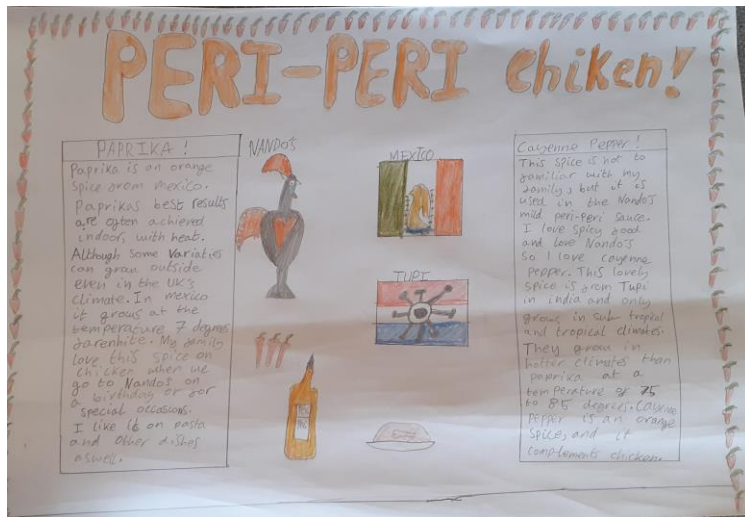 PERI-PERI Chiken!
PAPRIKA !
Paprika is an orange
spice from mexico.
Paprikas best results
are often achieved
indoor, with heat.
Although some variaties
can grow outside
even in the UK's
climate. In mexico
it grows at the
temperature 7 degrees
farenhite. My family
love this spice on
chicken when we
go to Nando's on
a birthday or for
special occasions.
I like it on pasta
and other dishes
aswell.
NANDO'S
MEXICO
TUPI
Cayenne Pepper!
This spice is not to
familiar with my
family, but it is
used in the Nando's
mild peri-peri sauce.
I love spicy food
and love Nando's
so I love cayenne
pepper. This lovely
spice is from Tupi
in india and only
grows in sub-tropical
and tropical climates.
They grow in
hotter climates than
paprika at a
temperature of 75
to 85 degrees. Cayene
pepper is an orange
spice, and it
complements chicken.